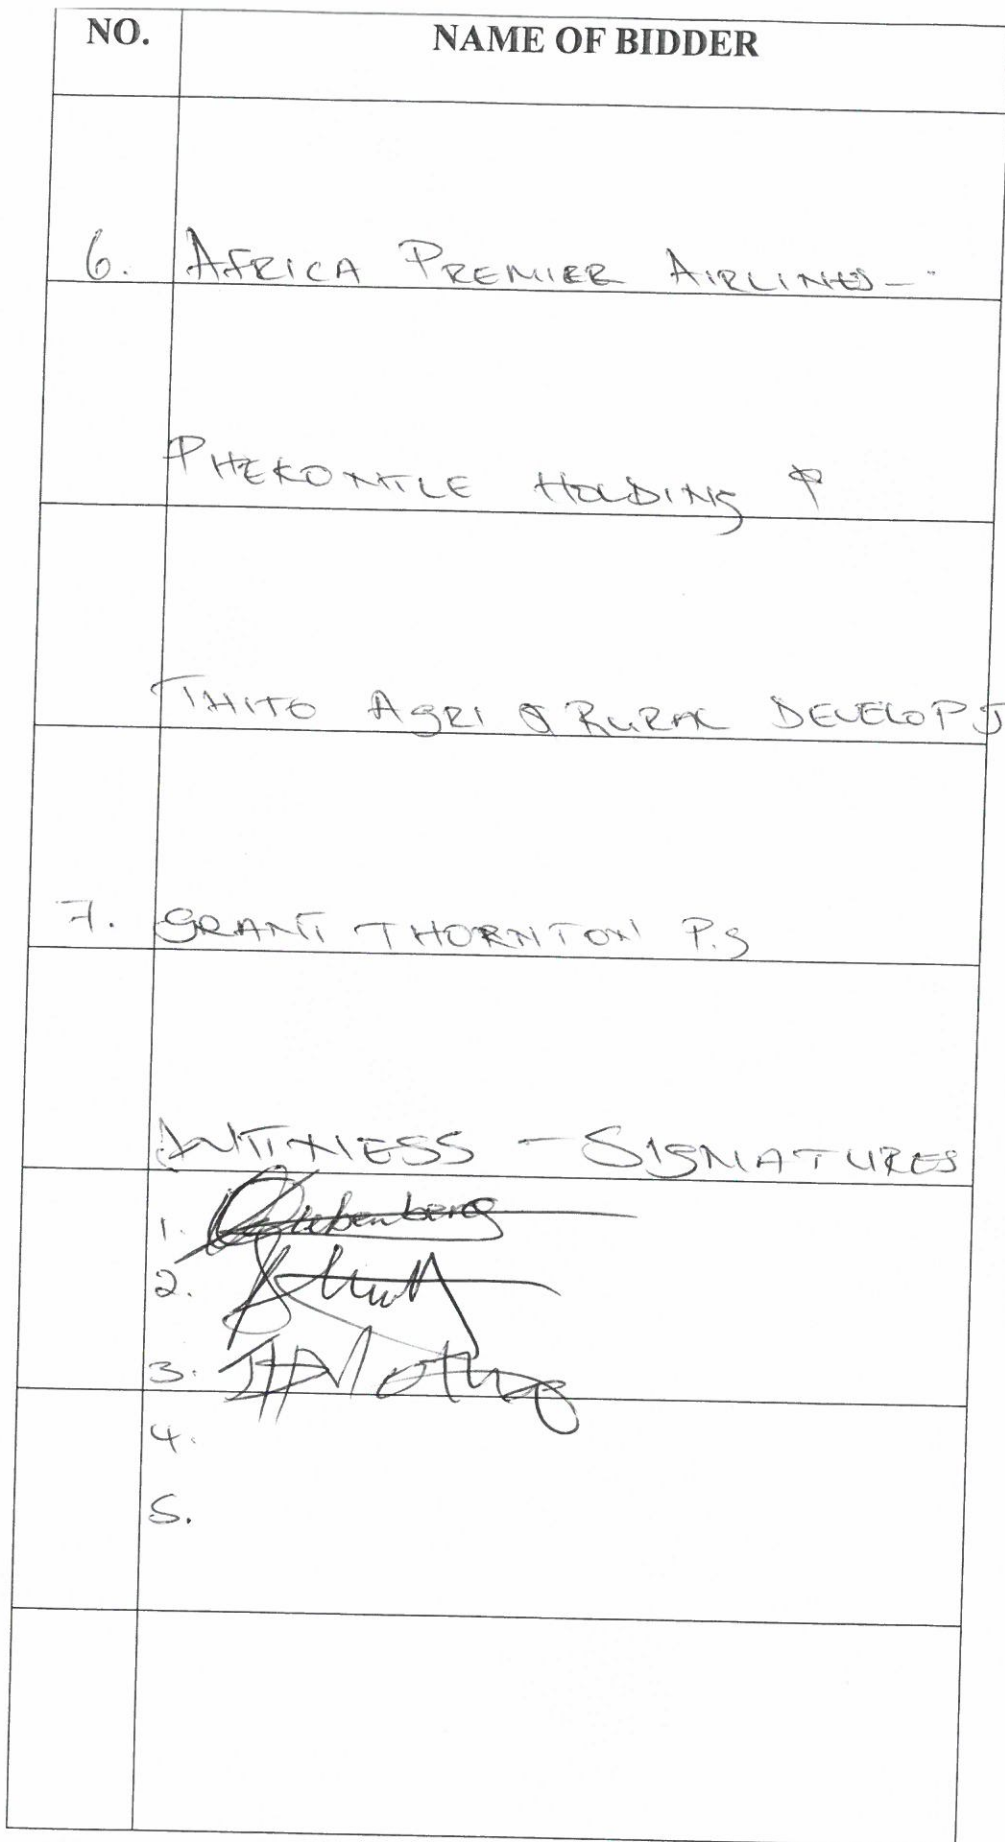 NO. NAME OF BIDDER
6. AFRICA PREMIER AIRLINES -
PHEKONTLE HOLDING &
THITO AGRI & RURAL DEVELOP J
7. GRANT THORNTON P.S
WITNESS - SIGNATURES
1. Liebenberg
2.
3.
4.
5.